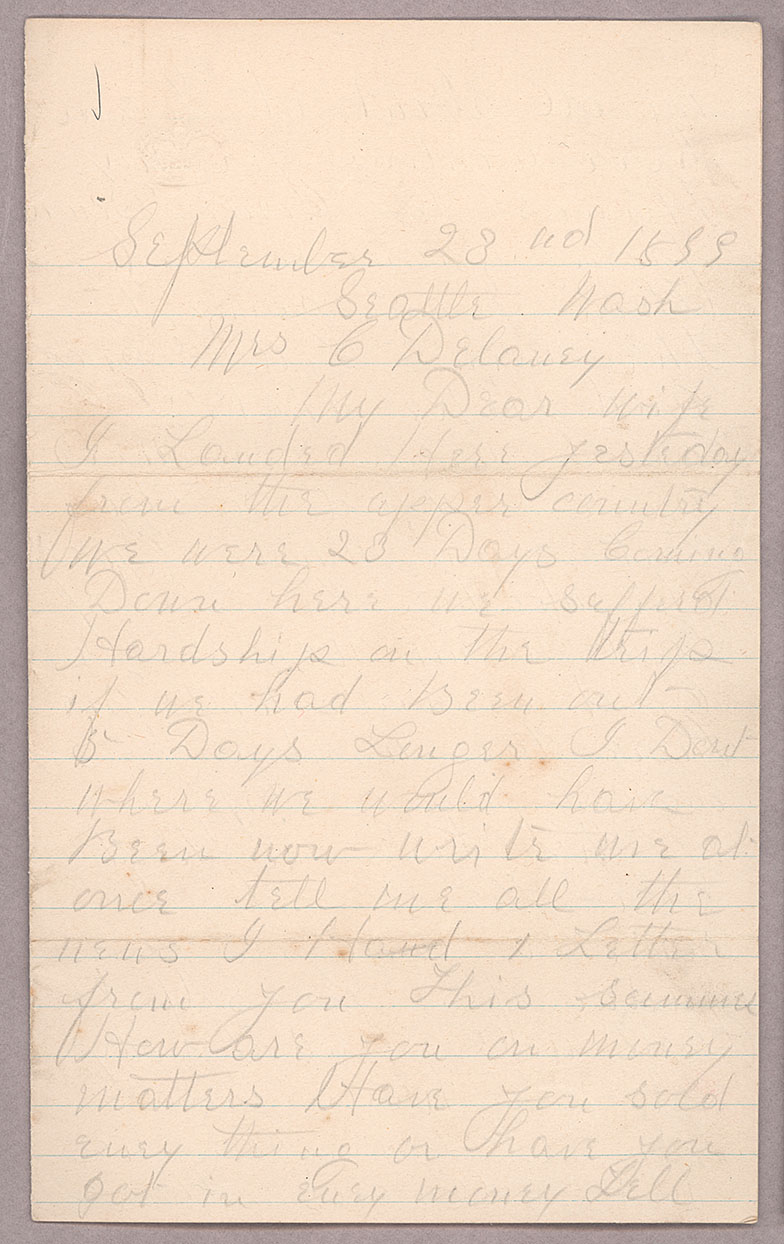 September 23 nd 1899
Seattle Wash
Mrs C Delaney
My Dear wife
I Landed Here yesteday
from the upper country
we were 23 Days Coming
Down here we suffred
Hardship on the trip
if we had Been out
5 Days Longer I Dont
where we would have
Been now write me at
once tell me all the
news I Haved 1 Letter
from you this summer
How are you on money
matters Have you sold
eney thing or have you
got in eney money Tell